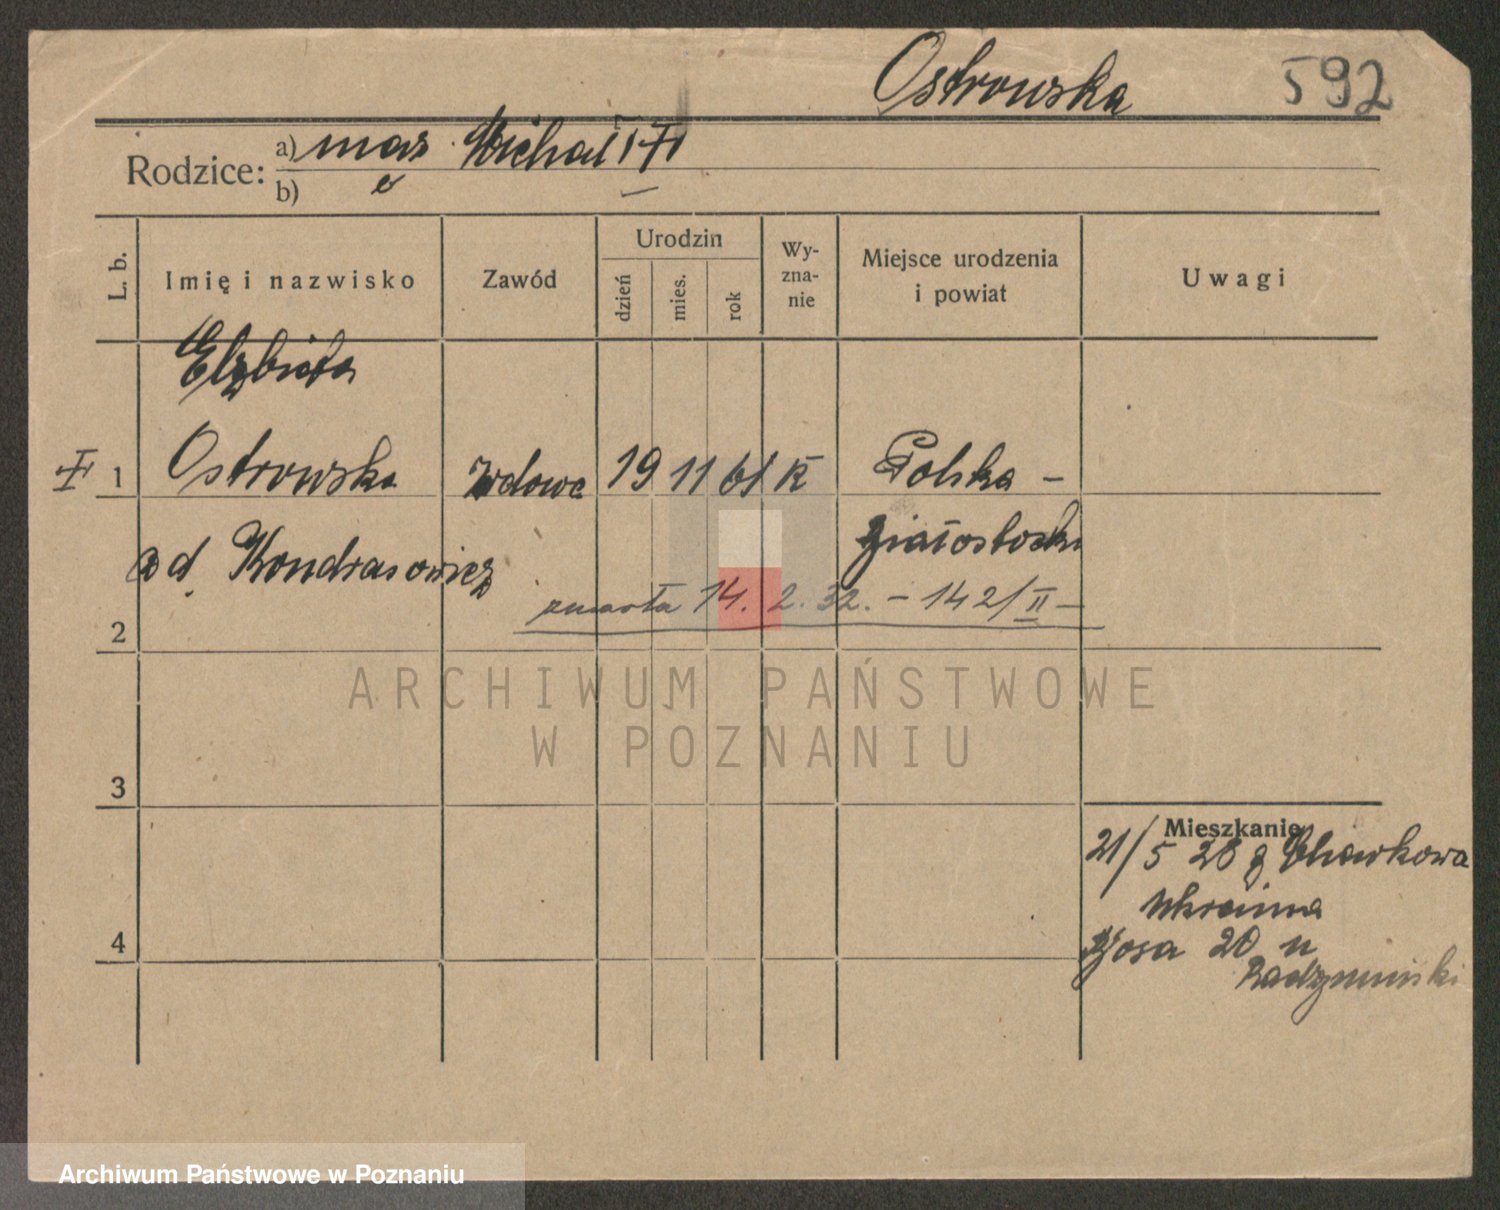 Ostrowska 592
Rodzice: a) mąż Michał
b)
L. b.
Imię i nazwisko
Zawód
Urodzin
dzień
mies.
rok
Wy-
zna-
nie
Miejsce urodzenia
i powiat
Uwagi
Elzbieta
1 Ostrowska wdowa 19 11 61 K Polska –
od Kondrasowicz Białostocki
zmarła 14. 2. 32. – 142/II –
2
ARCHIWUM PAŃSTWOWE
W POZNANIU
3
Mieszkanie
21/5 28 z Charkowa
Ukraina
4
20 u
Radzyminski
Archiwum Państwowe w Poznaniu